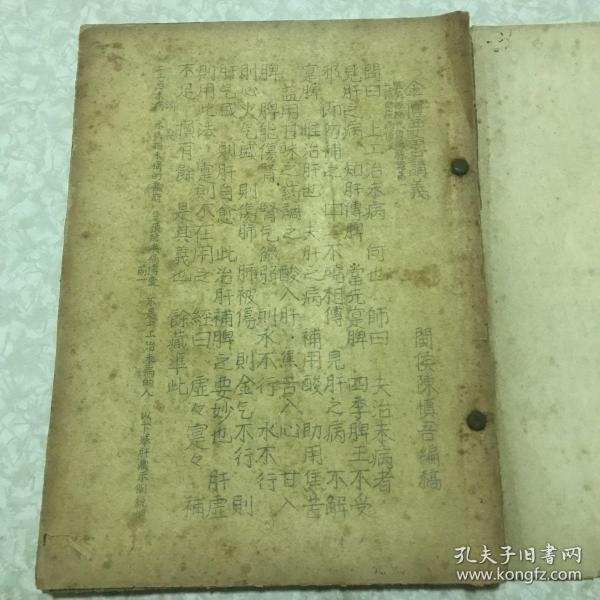 金匱要略講義
閩侯陳慎吾編稿
問曰 上工治未病 何也 師曰 夫治未病者
見肝之病 知肝傳脾 當先寔脾 四季脾王不受
邪 即勿補之 中工不曉相傳 見肝之病 不解
寔脾 惟治肝也 夫肝之病 補用酸 助用焦苦
益用甘味之药調之 酸入肝 焦苦入心 甘入
脾 脾能傷腎 腎气微弱 則水不行 水不行
則心火气盛 則傷肺 肺被傷 則金气不行 則
肝气盛 則肝自愈 此治肝補脾之要妙也 肝虛
則用此法 寔則不在用之 經曰 虛々寔々 補
不足 損有餘 是其義也 餘藏準此
孔夫子旧书网
www.kongfz.com